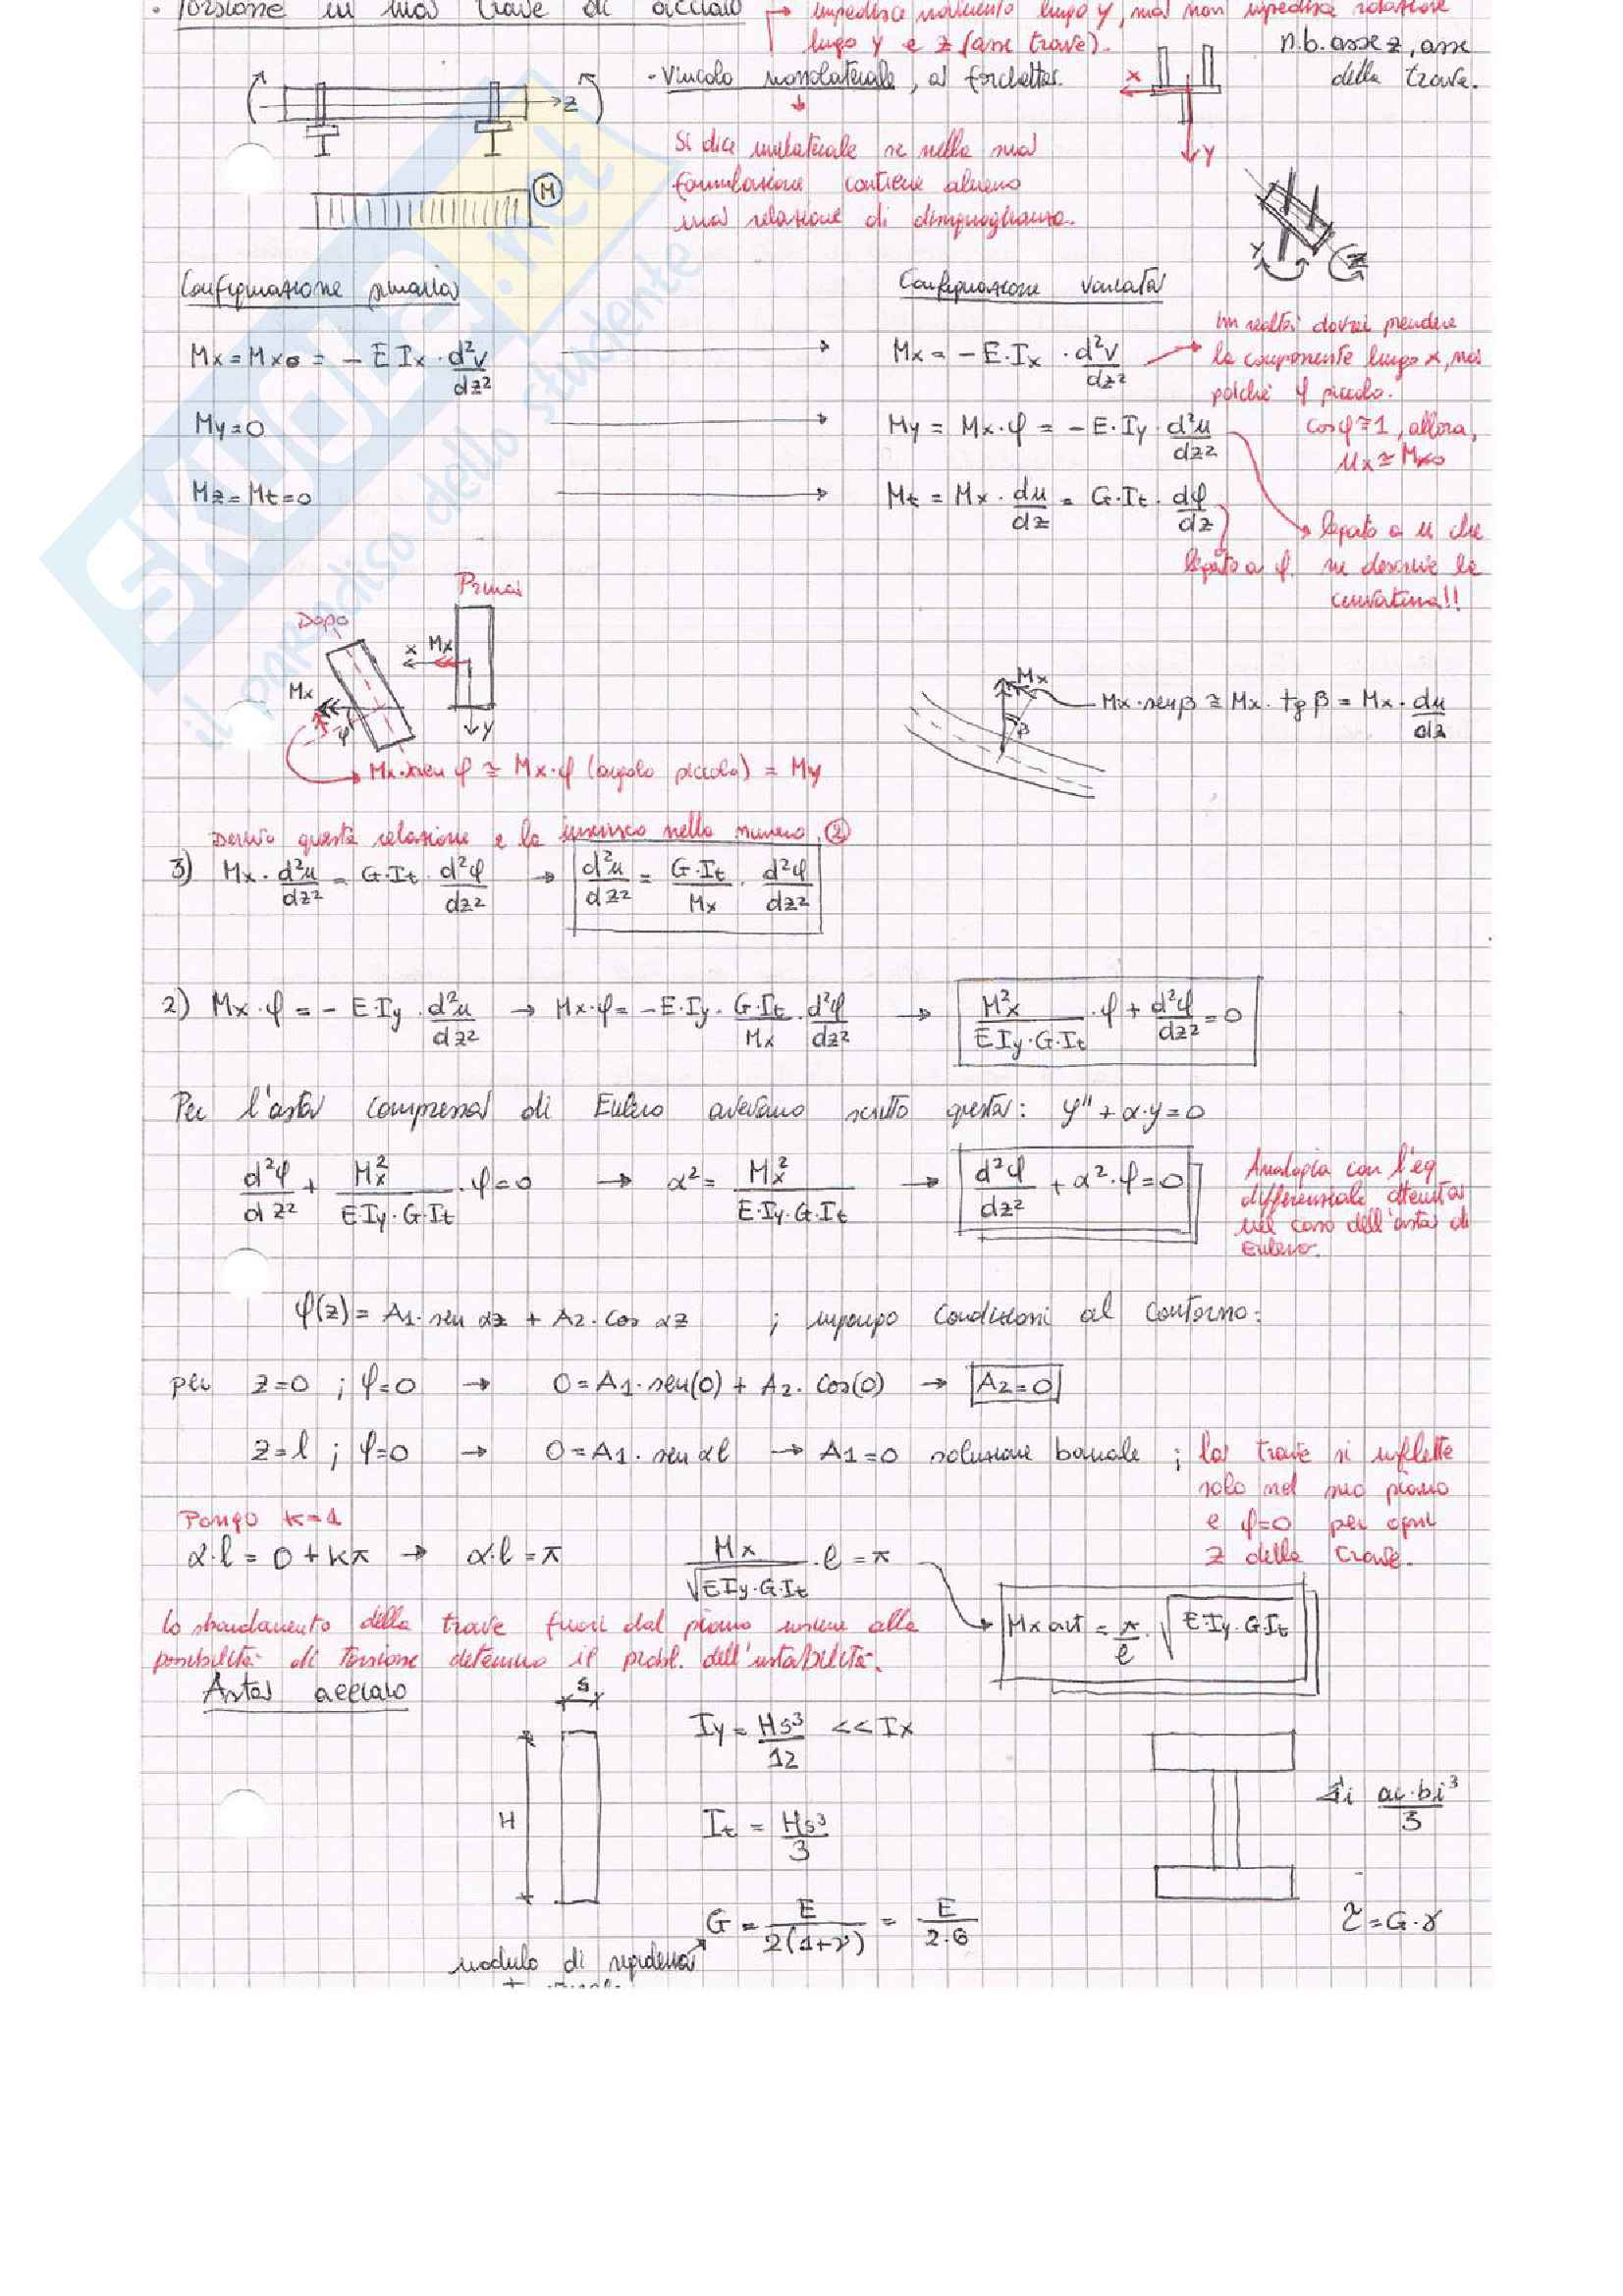 · Torsione in una trave di acciaio → impedisce movimento lungo y, ma non impedisce rotazione
lungo y e z (asse trave).
n.b. asse z, asse
della trave.
· Vincolo monolaterale, a forchetta.
Si dice unilaterale se nella sua
formulazione contiene almeno
una relazione di disuguaglianza.
z
M
x
y
y
z
Configurazione primaria
Configurazione variata
Mx = Mxo = - E Ix · d²v/dz² → Mx = - E · Ix · d²v/dz²
in realtà dovrei prendere
la componente lungo x, ma
poiché φ piccolo.
cosφ ≅ 1, allora,
Mx ≅ Mxo
My = 0 → My = Mx · φ = - E · Iy · d²u/dz²
Mz = Mt = 0 → Mt = Mx · du/dz = G · It · dφ/dz
legato a φ.
legato a u che
ne descrive la
curvatura!!
Prima
Dopo
x Mx
y
Mx
φ
Mx · sen φ ≅ Mx · φ (angolo piccolo) = My
Mx
β
Mx · sen β ≅ Mx · tg β = Mx · du/dz
Derivo questa relazione e la inserisco nella numero ②
3) Mx · d²u/dz² = G · It · d²φ/dz² → d²u/dz² = G · It/Mx · d²φ/dz²
2) Mx · φ = - E · Iy · d²u/dz² → Mx · φ = - E · Iy · G · It/Mx · d²φ/dz² → M²x/EIy · G · It · φ + d²φ/dz² = 0
Per l'asta compressa di Eulero avevamo scritto questa: y'' + α · y = 0
d²φ/dz² + Mx²/EIy · G · It · φ = 0 → α² = Mx²/E · Iy · G · It → d²φ/dz² + α² · φ = 0
Analogia con l'eq
differenziale ottenuta
nel caso dell'asta di
Eulero.
φ(z) = A1 · sen αz + A2 · cos αz ; impongo condizioni al contorno:
per z=0 ; φ=0 → 0 = A1 · sen(0) + A2 · cos(0) → A2=0
z=l ; φ=0 → 0 = A1 · sen αl → A1=0 soluzione banale ; la trave si inflette
solo nel suo piano
e φ=0 per ogni
z della trave.
Pongo k=1
α · l = 0 + kπ → α · l = π Mx/√EIy · G · It · l = π
Mx crit = π/l · √E · Iy · G · It
Lo sbandamento della trave fuori dal piano insieme alla
possibilità di torsione determina il probl. dell'instabilità.
Asta acciaio
s
H
Iy = Hs³/12 << Ix
It = Hs³/3
Σi ai · bi³/3
G = E/2(1+ν) = E/2.6
τ = G · γ
modulo di rigidezza